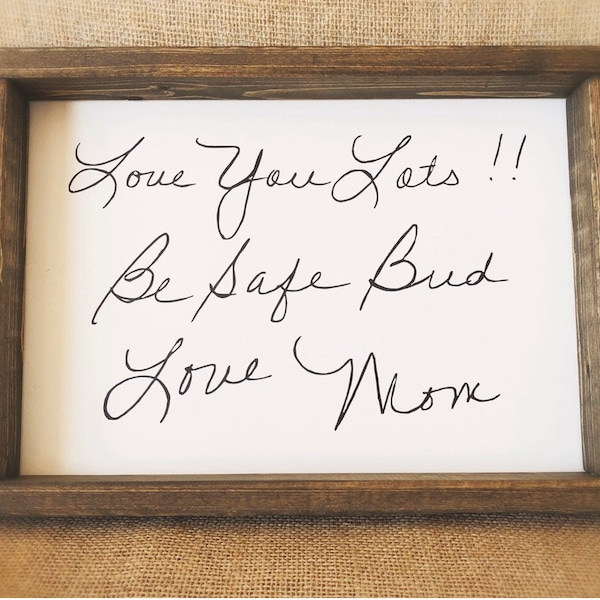 Love You Lots !!
Be Safe Bud
Love Mom